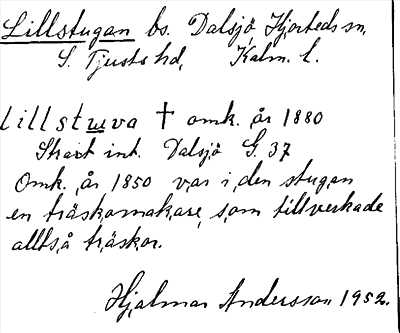 Lillstugan bs. Dalsjö, Hjorteds sn,
S. Tjusts hd, Kalm. l.
lillstuva † omk. år 1880
Strax int. Dalsjö G. 37
Omk. år 1850 var i den stugan
en träskomakare, som tillverkade
alltså träskor.
Hjalmar Andersson 1952.